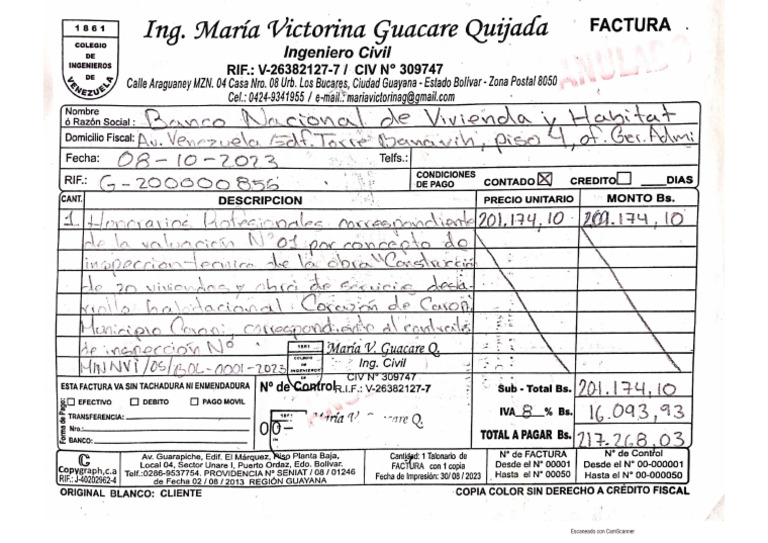 1861
COLEGIO
DE
INGENIEROS
DE
VENEZUELA
Ing. María Victorina Guacare Quijada
FACTURA
Ingeniero Civil
RIF.: V-26382127-7 / CIV N° 309747
ANULADO
Calle Araguaney MZN. 04 Casa Nro. 08 Urb. Los Bucares, Ciudad Guayana - Estado Bolívar - Zona Postal 8050
Cel.: 0424-9341955 / e-mail.: mariavictorinag@gmail.com
Nombre ó Razón Social: Banco Nacional de Vivienda y Habitat
Domicilio Fiscal: Av. Venezuela Edf. Torre Banavih, piso 4, of. Ger. Admi
Fecha: 08-10-2023 Telfs.:
RIF.: G-200000856 CONDICIONES DE PAGO CONTADO ☒ CREDITO ☐ ____DIAS
CANT. DESCRIPCION PRECIO UNITARIO MONTO Bs.
1 Honorarios Profesionales correspondiente 201.174,10 201.174,10
de la valuación N°01 por concepto de
inspeccion tecnica de la obra "Construcción
de 20 viviendas y obra de servicio desa-
rrollo habitacional Corazón de Caroni
Municipio Caroni, correspondiente al contrato
de inspección N°
MINNVI/OS/BOL-0001-2023
1861
COLEGIO
DE
INGENIEROS
María V. Guacare Q.
Ing. Civil
CIV N° 309747
R.I.F.: V-26382127-7
ESTA FACTURA VA SIN TACHADURA NI ENMENDADURA
N° de Control
Sub - Total Bs. 201.174,10
Forma de Pago:
☐ EFECTIVO ☐ DEBITO ☐ PAGO MOVIL
TRANSFERENCIA:
Nro.:
BANCO:
00-
1861
María V. Guacare Q.
IVA 8 % Bs. 16.093,93
TOTAL A PAGAR Bs. 217.268,03
Copygraph,c.a
RIF.: J-40202962-4
Av. Guarapiche, Edif. El Márquez, Piso Planta Baja,
Local 04, Sector Unare I, Puerto Ordaz, Edo. Bolivar.
Telf.:0286-9537754. PROVIDENCIA N° SENIAT / 08 / 01246
de Fecha 02 / 08 / 2013 REGIÓN GUAYANA
Cantidad: 1 Talonario de
FACTURA con 1 copia
Fecha de Impresión: 30/ 08 / 2023
N° de FACTURA
Desde el N° 00001
Hasta el N° 00050
N° de Control
Desde el N° 00-000001
Hasta el N° 00-000050
ORIGINAL BLANCO: CLIENTE
COPIA COLOR SIN DERECHO A CRÉDITO FISCAL
Escaneado con CamScanner